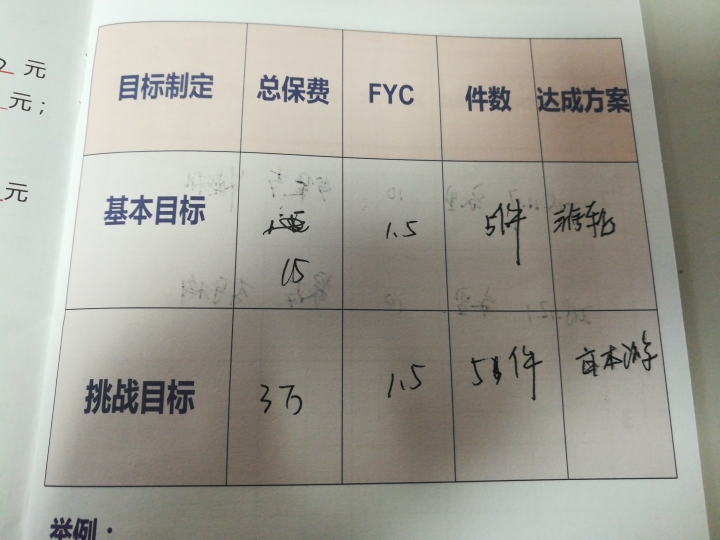 元
元；
元
目标制定 总保费 FYC 件数 达成方案
基本目标 1.5 5件
15
挑战目标 3万 1.5 件
举例：